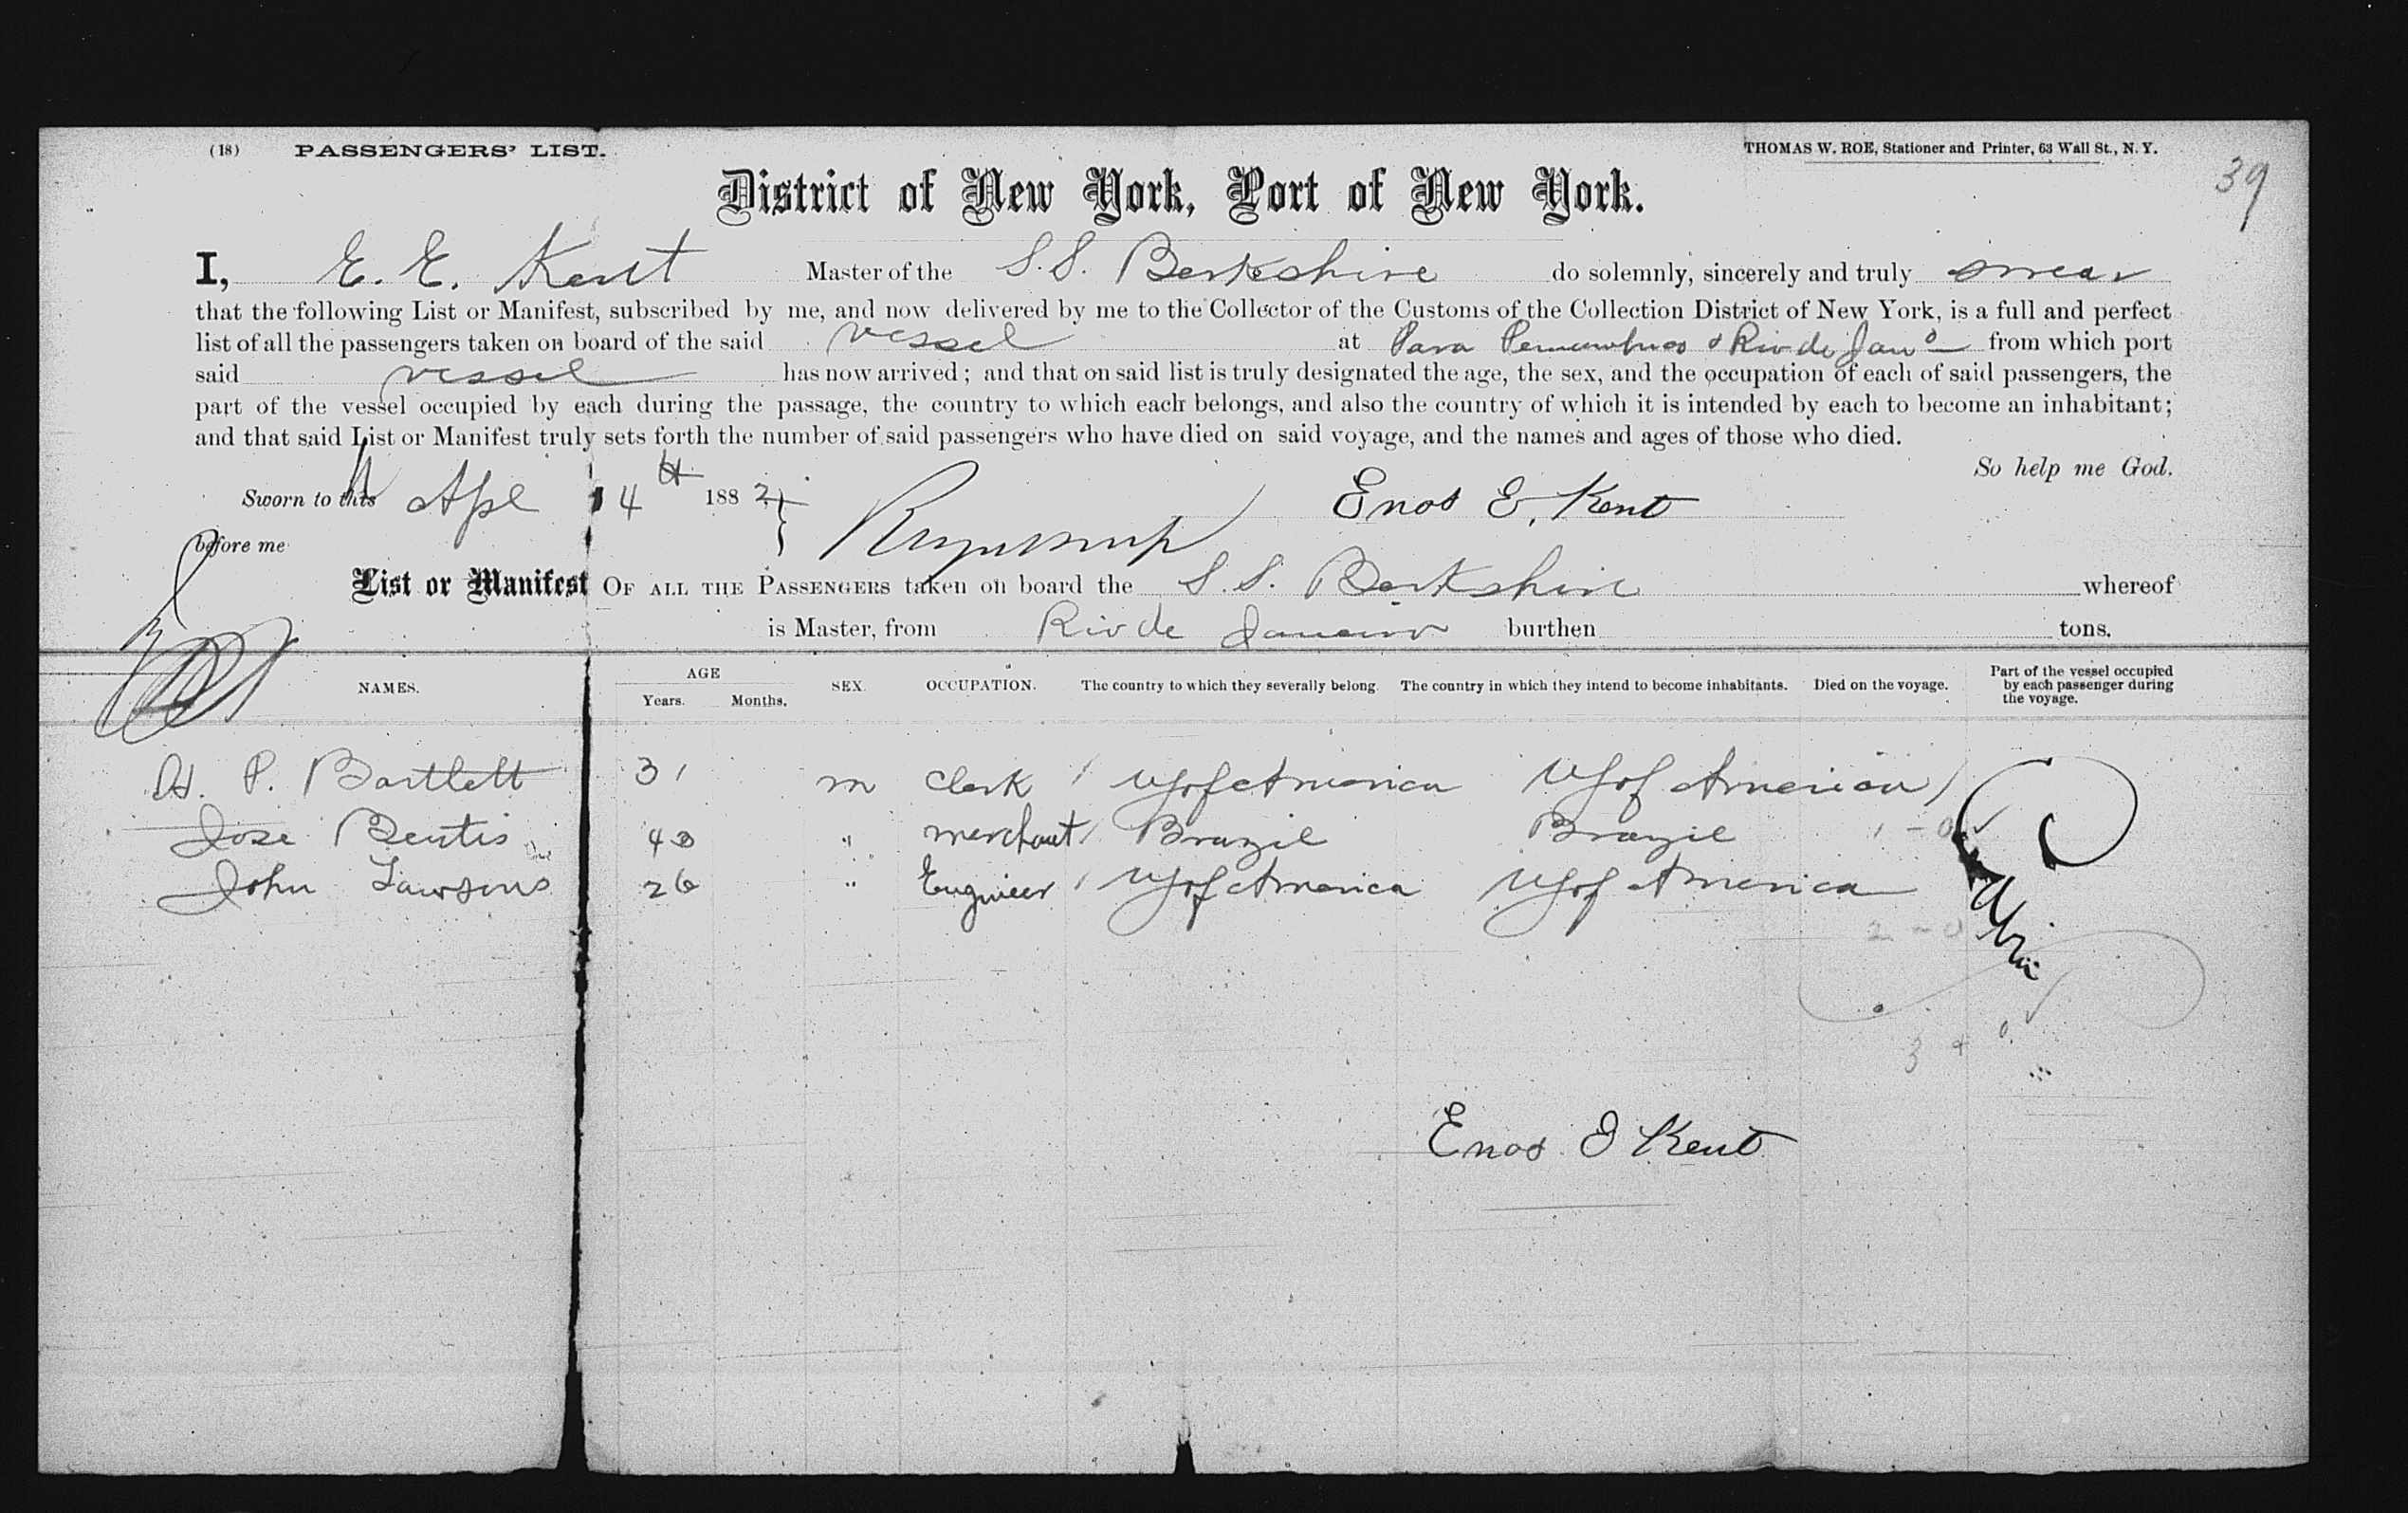 (18) PASSENGERS' LIST. THOMAS W. ROE, Stationer and Printer, 63 Wall St., N. Y.
39
District of New York, Port of New York.
I, E. E. Kent Master of the S.S. Berkshire do solemnly, sincerely and truly swear
that the following List or Manifest, subscribed by me, and now delivered by me to the Collector of the Customs of the Collection District of New York, is a full and perfect
list of all the passengers taken on board of the said vessel at Para Pernambuco & Rio de Jano from which port
said vessel has now arrived; and that on said list is truly designated the age, the sex, and the occupation of each of said passengers, the
part of the vessel occupied by each during the passage, the country to which each belongs, and also the country of which it is intended by each to become an inhabitant;
and that said List or Manifest truly sets forth the number of said passengers who have died on said voyage, and the names and ages of those who died.
So help me God.
Sworn to this Apl 14th 1882 Enos E. Kent
before me
List or Manifest OF ALL THE PASSENGERS taken on board the S.S. Berkshire whereof
is Master, from Rio de Janeiro burthen tons.
NAMES. AGE Years. Months. SEX. OCCUPATION. The country to which they severally belong. The country in which they intend to become inhabitants. Died on the voyage. Part of the vessel occupied by each passenger during the voyage.
H. P. Bartlett 31 m Clerk US of America US of America
Jose Bentis 43 " merchant Brazil Brazil 1 - 0
John Lawsons 26 " Engineer US of America US of America
Cabin
2 - 0
3 + 0
Enos E Kent